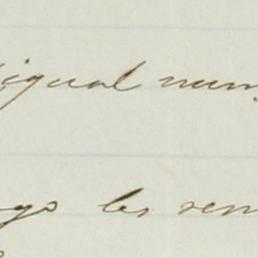 igual num
go les ren